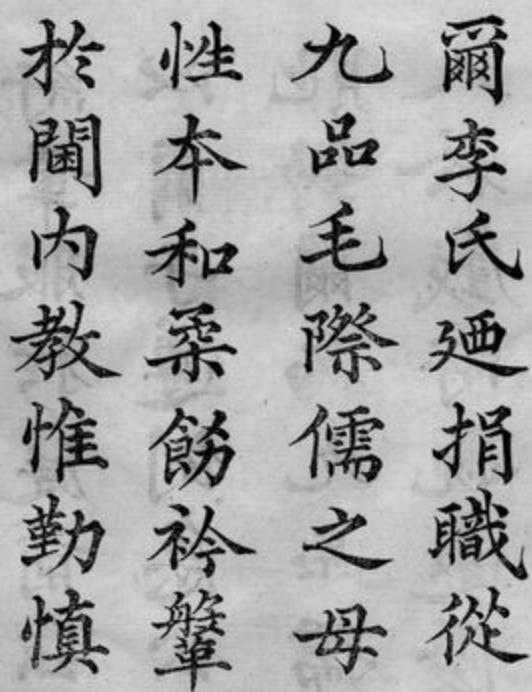 爾李氏廼捐職從
九品毛際儒之母
性本和柔飭衿鞶
於閫內教惟勤慎